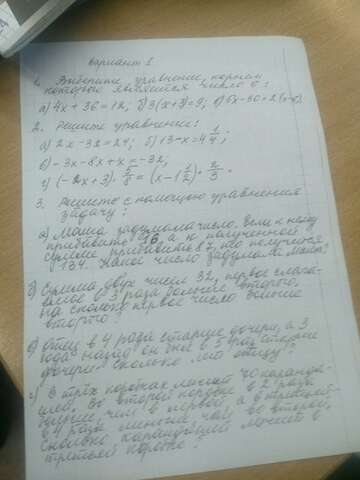 Вариант 1
1. Выберите уравнение, корнем
которого является число 6:
а) 4x + 36 = 12; б) 3(x+3) = 9; в) 5x - 30 = 2(x-6).
2. Решите уравнения:
а) 2x - 32 = 24; б) 13 - x = 4 1/4;
в) -3x - 8x + x = -32;
г) (-2x + 3) · 2/5 = (x - 1 1/2) · 2/3.
3. Решите с помощью уравнения
задачу:
а) Маша задумала число, если к нему
прибавить 16, а к полученной
сумме прибавить 87, то получится
134. Какое число задумала Маша?
б) Сумма двух чисел 32, первое слага-
емое в 3 раза больше второго,
на сколько первое число больше
второго?
в) Отец в 4 раза старше дочери, а 3
года назад он был в 5 раз старше
дочери. Сколько лет отцу?
г) В трёх коробках лежит 40 каранда-
шей, во второй коробке в 2 раза
больше чем в первой, а в третьей
в 4 раза меньше, чем во второй,
сколько карандашей лежит в
третьей коробке?